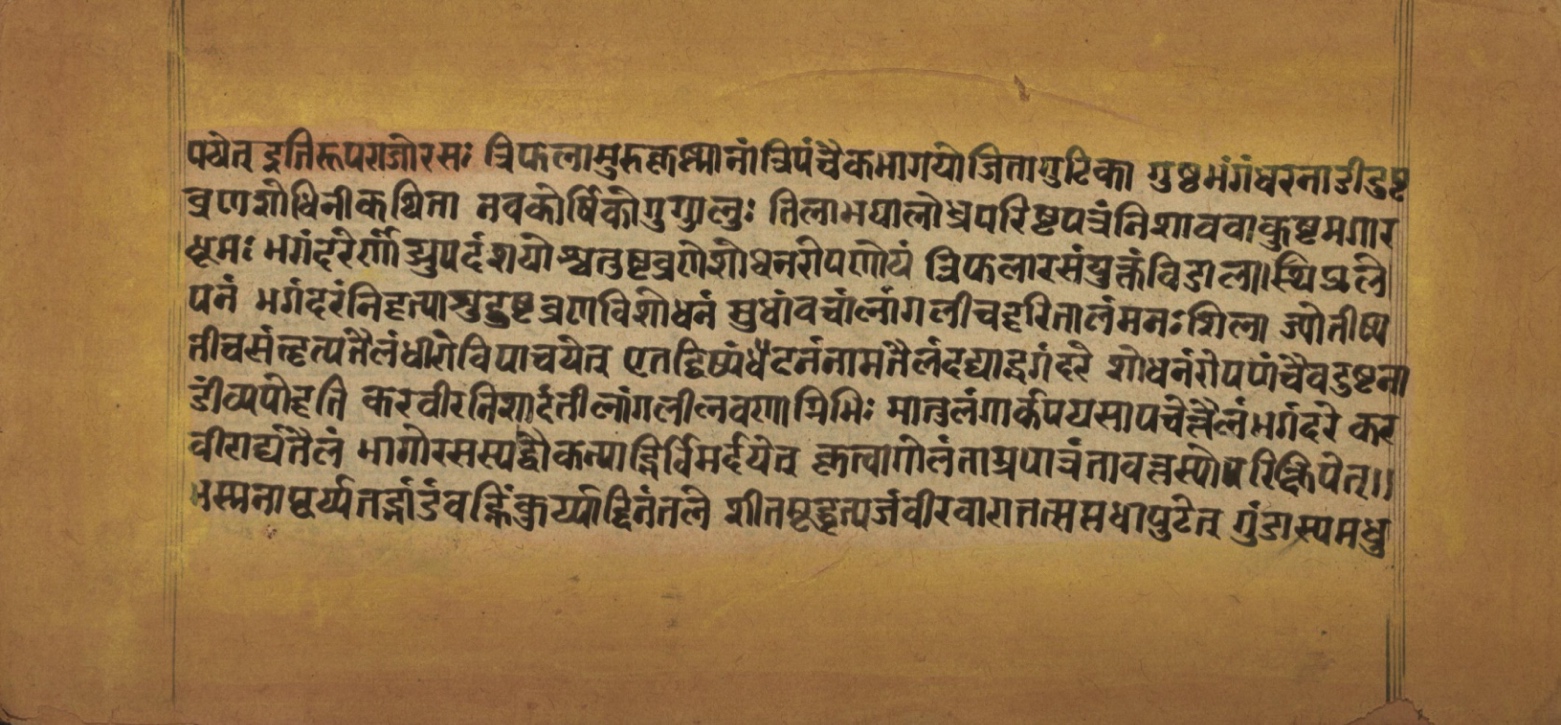 पयेत् इतिरूपराजोरसः त्रिफलासुरुक्लष्मानांत्रिपंचैकभागयोजितागुटिका गुष्ठभंगंधरनाडीदुष्ट
व्रणशोधिनीकथिता नवकोर्षिकोगुग्गुलुः तिलाभयालोध्रपरिष्टपत्रंनिशाववाकुष्टमगार
धूमः भगंदरेर्णाड्युपदंशयोश्चतुष्टव्रणेशोधनरोपणोयं त्रिफलारसंयुक्तंविडाला॥स्थिप्रले
पनं भगंदरंनिहत्याशुदुष्टव्रणविशोधनं सुधांवचांलांगलीचहरितालंमनःशिला ज्योतीष्म
तीचसंत्दृत्यतैलंधीरोविपाचयेत् एतद्विष्यंधैदनंनामतैलंदद्याद्भगंदरे शोधनंरोपणंचैवदुष्टना
डींव्यपोहति करवीरनिशादंतीलांगलीलवणाग्निभिः मातुलंगार्कपयसापचेत्तैलंभगंदरे कर
वीराद्यंतैलं भागोरसस्यद्वौकन्याद्भिर्विमर्दयेत् कृत्वागोलंताम्रपात्रंतावत्तस्योपरिक्षिपेत्॥
भस्मनापूर्य्यतद्भांडंवह्निंकुर्य्याद्दिनंतले शीतमुद्धृत्यजंवीरवारातत्सप्तधापुटेत् गुंडास्यमधु